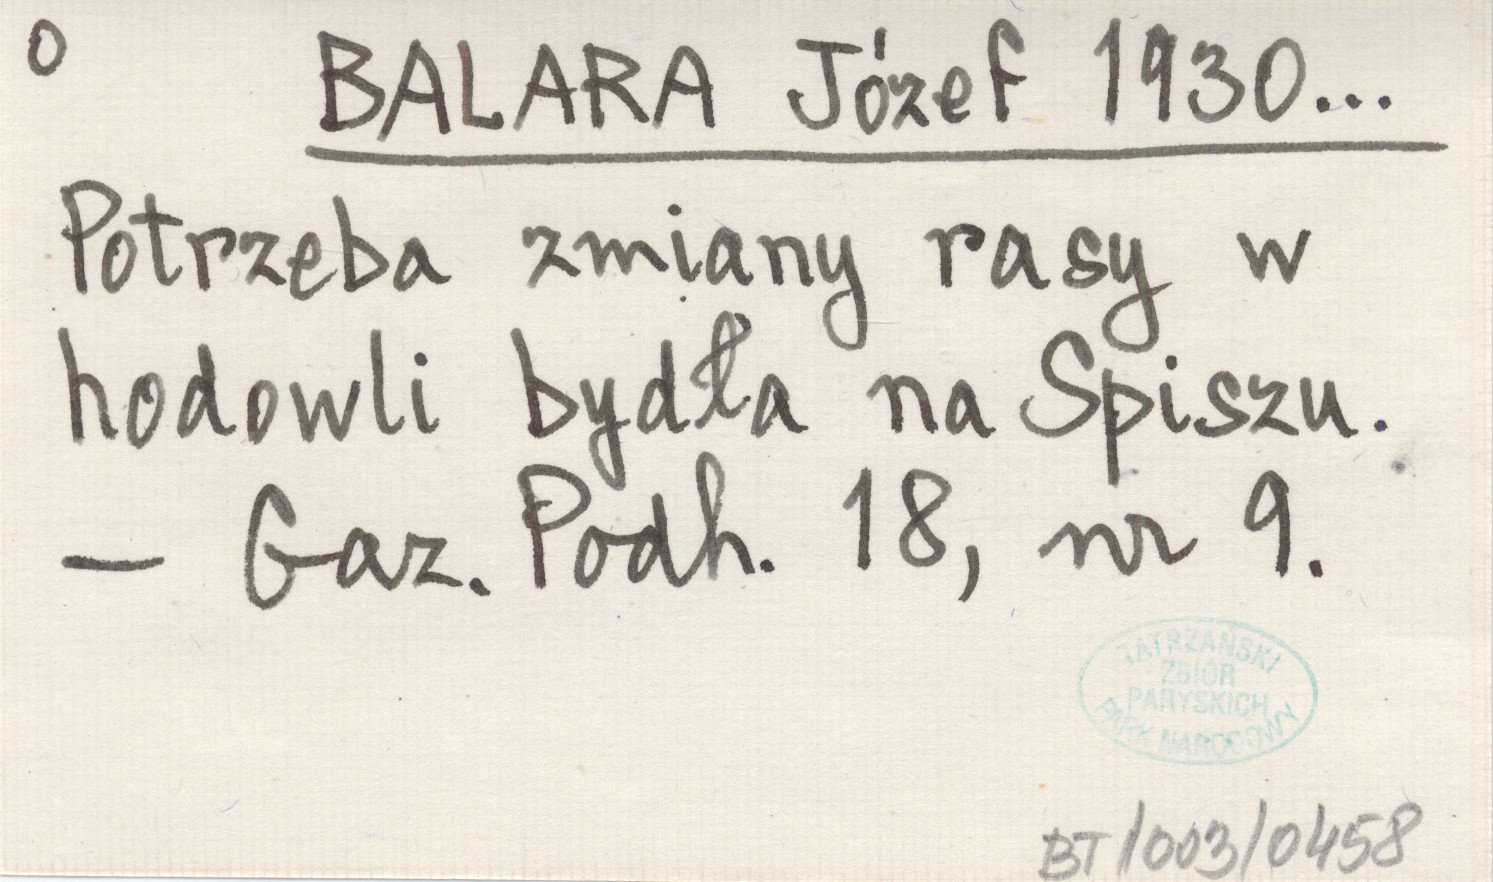 o
BALARA Józef 1930...
Potrzeba zmiany rasy w
hodowli bydła na Spiszu.
— Gaz. Podh. 18, nr 9.
TATRZAŃSKI
ZBIÓR
PARYSKICH
PARK NARODOWY
BT/003/0458